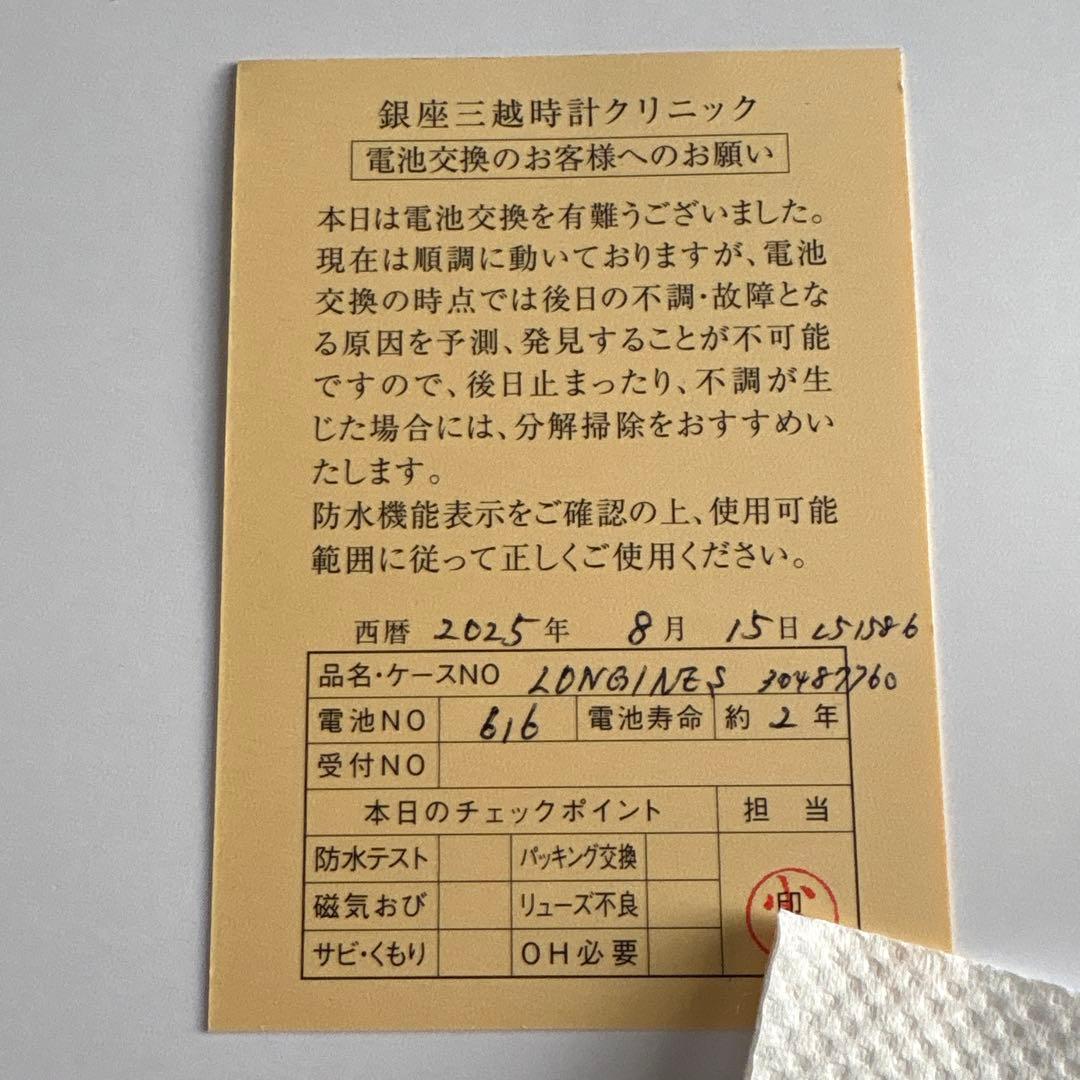 銀座三越時計クリニック
電池交換のお客様へのお願い
本日は電池交換を有難うございました。
現在は順調に動いておりますが、電池
交換の時点では後日の不調・故障とな
る原因を予測、発見することが不可能
ですので、後日止まったり、不調が生
じた場合には、分解掃除をおすすめい
たします。
防水機能表示をご確認の上、使用可能
範囲に従って正しくご使用ください。
西暦 2025年 8月 15日 L51586
品名・ケースNO LONGINES 30487760
電池NO 616 電池寿命 約 2 年
受付NO
本日のチェックポイント 担 当
防水テスト パッキング交換
磁気おび リューズ不良 印
サビ・くもり OH必要